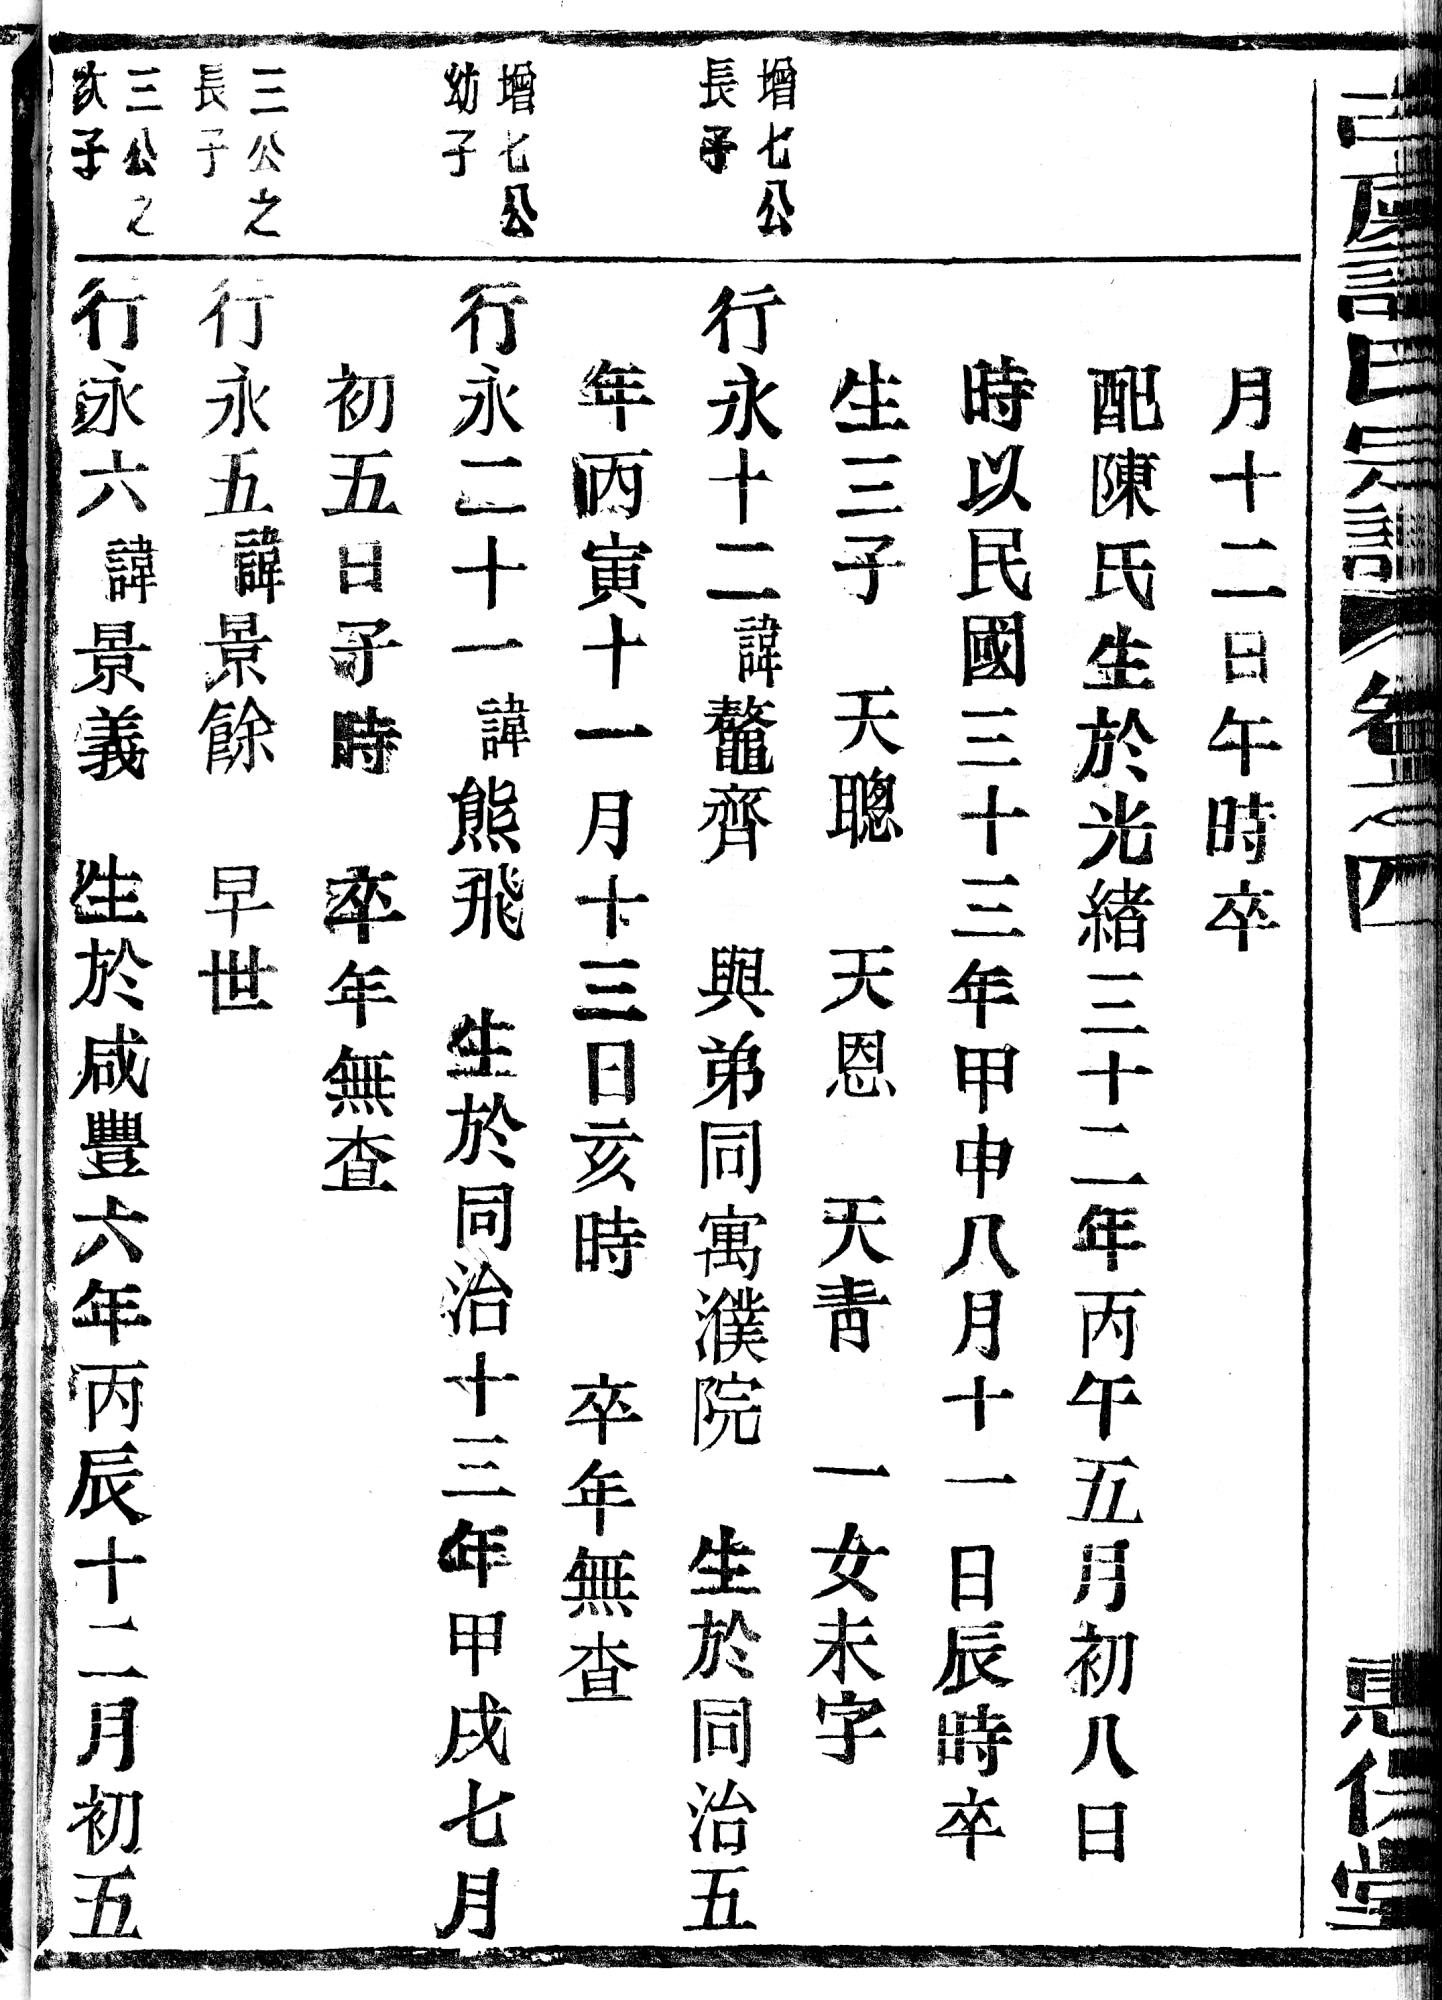 氏宗譜 卷之四
月十二日午時卒
配陳氏生於光緒三十二年丙午五月初八日
時以民國三十三年甲申八月十一日辰時卒
生三子 天聰 天恩 天青 一女未字
增七公
長子
行永十二諱鼇齊 與弟同寓濮院 生於同治五
年丙寅十一月十三日亥時 卒年無查
增七公
幼子
行永二十一諱熊飛 生於同治十三年甲戌七月
初五日子時 卒年無查
三公之
長子
行永五諱景餘 早世
三公之
次子
行永六諱景義 生於咸豐六年丙辰十二月初五